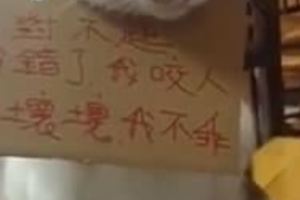 對不起
錯了我咬人
壞壞.我不乖